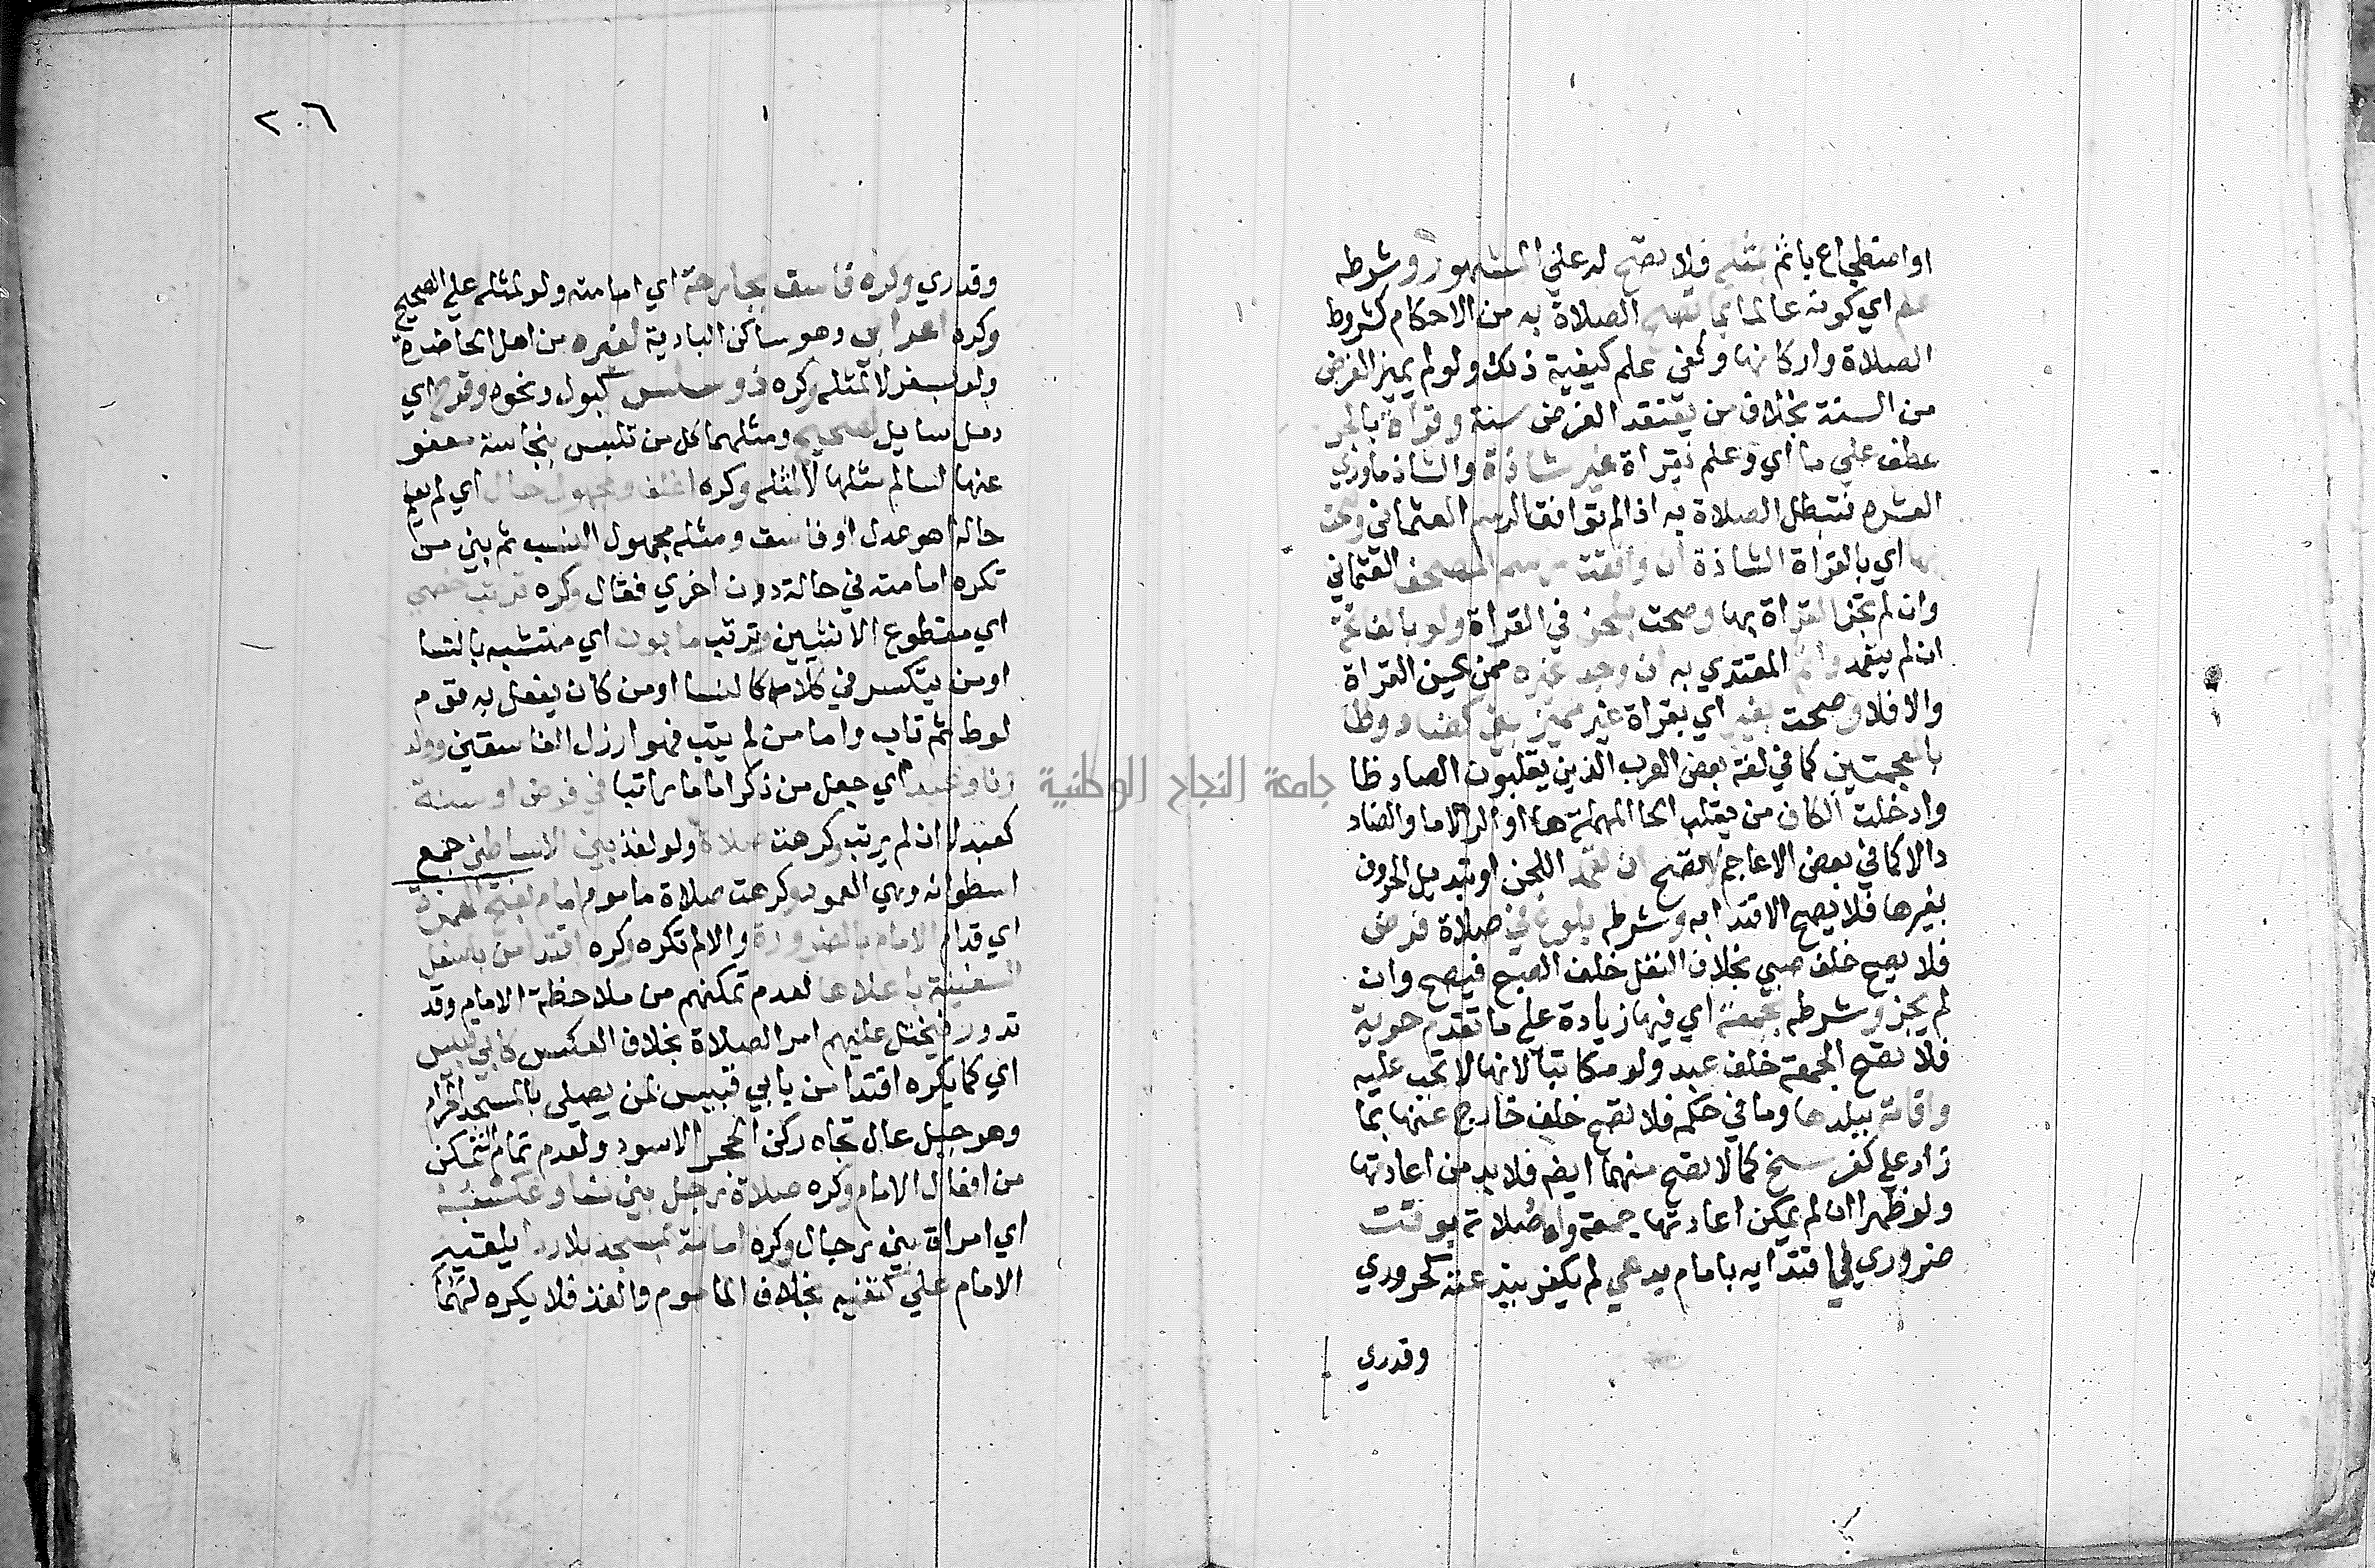 او اضطجاع ياتم بمثله فلا تصح له علي المشهور وشرطه
علم اي كونه عالما بما تصح الصلاة به من الاحكام كشروط
الصلاة واركانها وكفي علم كيفية ذلك ولو لم يميز الفرض
من السنة بخلاف من يعتقد الفرض سنة وقراة بالجر
عطف علي ما اي وعلم بقراة غير شاذة والشاذ ماوري
العشره فتبطل الصلاة به اذا لم توافق الرسم العثماني وصحت
بها اي بالقراة الشاذة ان وافقت رسم المصحف العثماني
وان لم تجز القراة بها وصحت بلحن في القراة ولو بالفاتحة
ان لم يتعمد واثم المقتدي به ان وجد غيره ممن يحسن القراة
والا فلا وصحت بغير اي بقراة غير مميز بين كضاد وظا
بالمعجمتين كما في لغة بعض العرب الذين يقلبون الضاد ظا
وادخلت الكاف من يقلب الحا المهملة ها او الرا لاما والضاد
دالا كما في بعض الاعاجم لا تصح ان تعمد اللحن او تبديل الحروف
بغيرها فلا يصح الاقتدا به وشرطه بلوغ في صلاة فرض
فلا يصح خلف صبي بخلاف النفل خلف الصبي فيصح وان
لم يجز وشرطه بجمعة اي فيها زيادة علي ما تقدم حرية
فلا تصح الجمعة خلف عبد ولو مكاتبا لانها لا تجب عليه
واقامة ببلدها وما في حكمه فلا تصح خلف خارج عنها بما
زاد علي كفرسخ كما لا تصح منهما ايضم فلا بد من اعادتها
ولو ظهرا ان لم يمكن اعادتها جمعة واعاد صلاته بوقت
ضروري في اقتدايه بامام بدعي لم يكفر ببدعته كحروري
وقدري
٢٠٦
وقدري وكره فاسق بجارحة اي امامته ولو لمثله علي الصحيح
وكره اعرابي وهو ساكن البادية لغيره من اهل الحاضرة
ولو بسفر لا لمثله وكره ذو سلس كبول ونحوه وقرح اي
دمل سايل لصحيح ومثلهما كل من تلبس بنجاسة معفو
عنها لسالم مثلها لا لمثله وكره اغلف ومجهول حال اي لم يعلم
حاله اهو عدل او فاسق ومثله مجهول النسب ثم بين من
تكره امامته في حالة دون اخري فقال وكره ترتب خصي
اي مقطوع الانثيين وترتب مابون اي متشبه بالنسا
او من يتكسر في كلامه كالنسا او من كان يفعل به قوم
لوط ثم تاب واما من لم يتب فهو ارزل الفاسقين وولد
زنا وعبد اي جعل من ذكر اماما راتبا في فرض او سنة
كعيد لا ان لم يرتب وكرهت صلاة ولو لفذ بين الاساطين جمع
اسطوانه وهي العمود وكرهت صلاة ماموم امام بفتح الهمزة
اي قدام الامام بلا ضرورة والا لم تكره وكره اقتدا من باسفل
السفينة باعلاها لعدم تمكنهم من ملاحظة الامام وقد
تدور فيختل عليهم امر الصلاة بخلاف العكس كابي قبيس
اي كما يكره اقتدا من بابي قبيس لمن يصلي بالمسجد الحرام
وهو جبل عال تجاه ركن الحجر الاسود ولعدم تمام التمكن
من افعال الامام وكره صلاة رجل بين نسا وعكسه
اي امراة بين رجال وكره امامة بمسجد بلا ردا يلقيه
الامام علي كتفيه بخلاف الماموم والفذ فلا يكره لهما
جامعة النجاح الوطنية